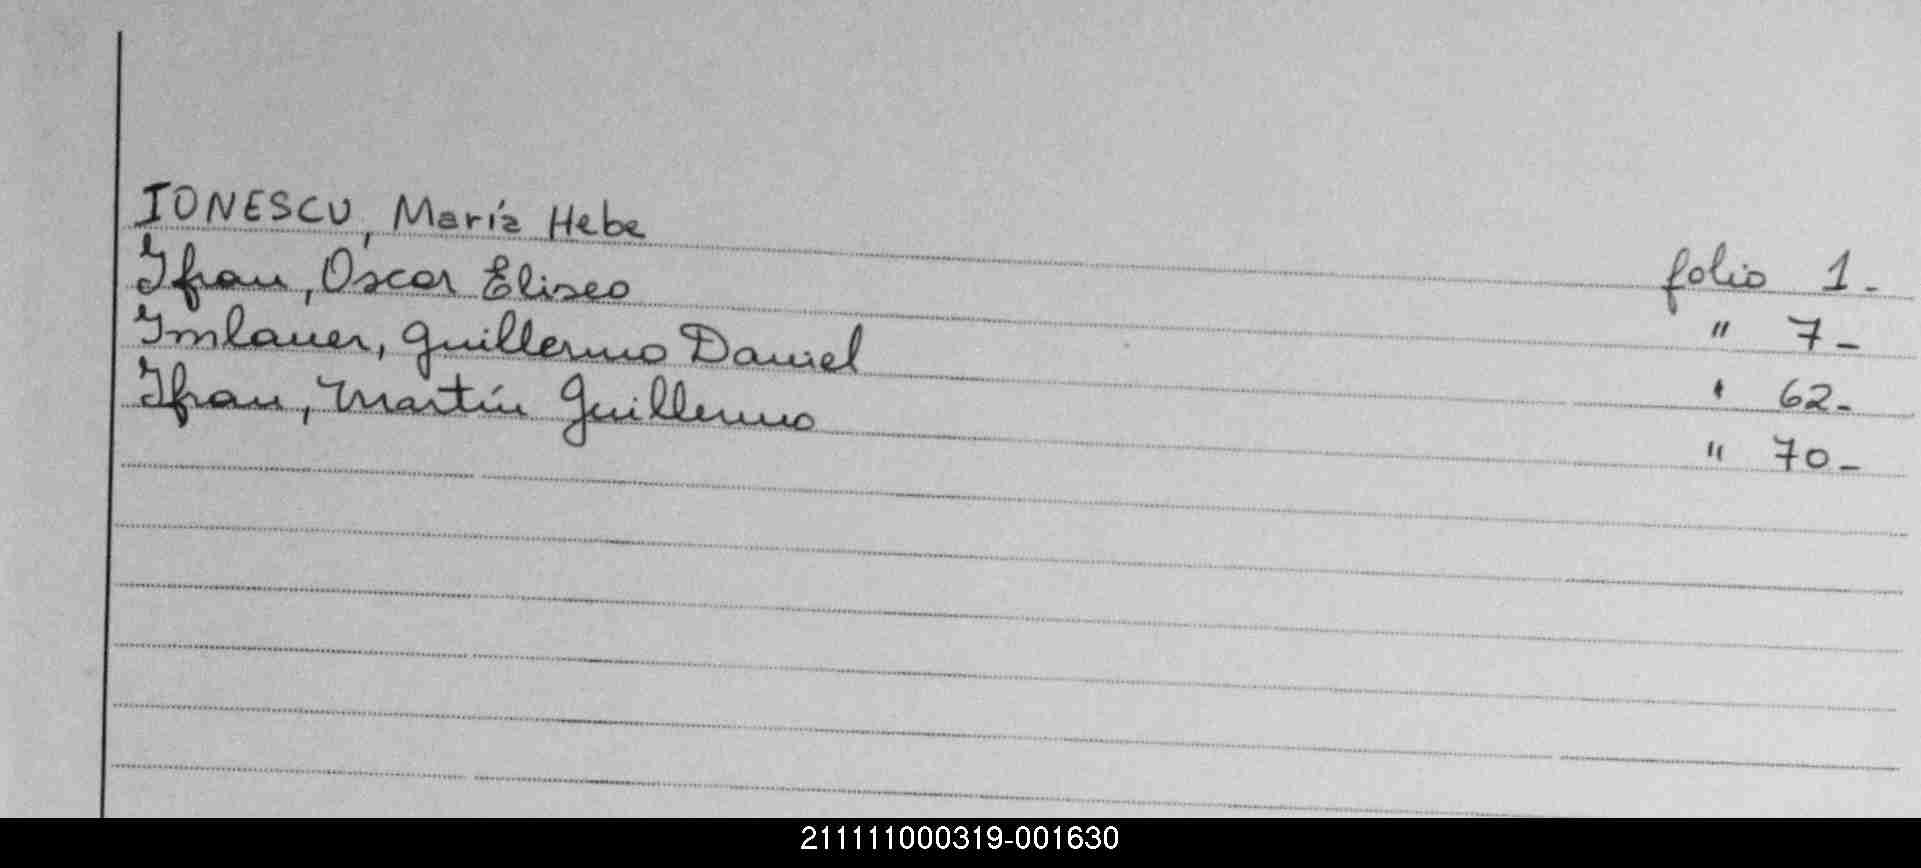 IONESCU, María Hebe folio 1-
Ifran, Oscar Eliseo " 7-
Imlauer, Guillermo Daniel " 62-
Ifran, Martín Guillermo " 70-
211111000319-001630